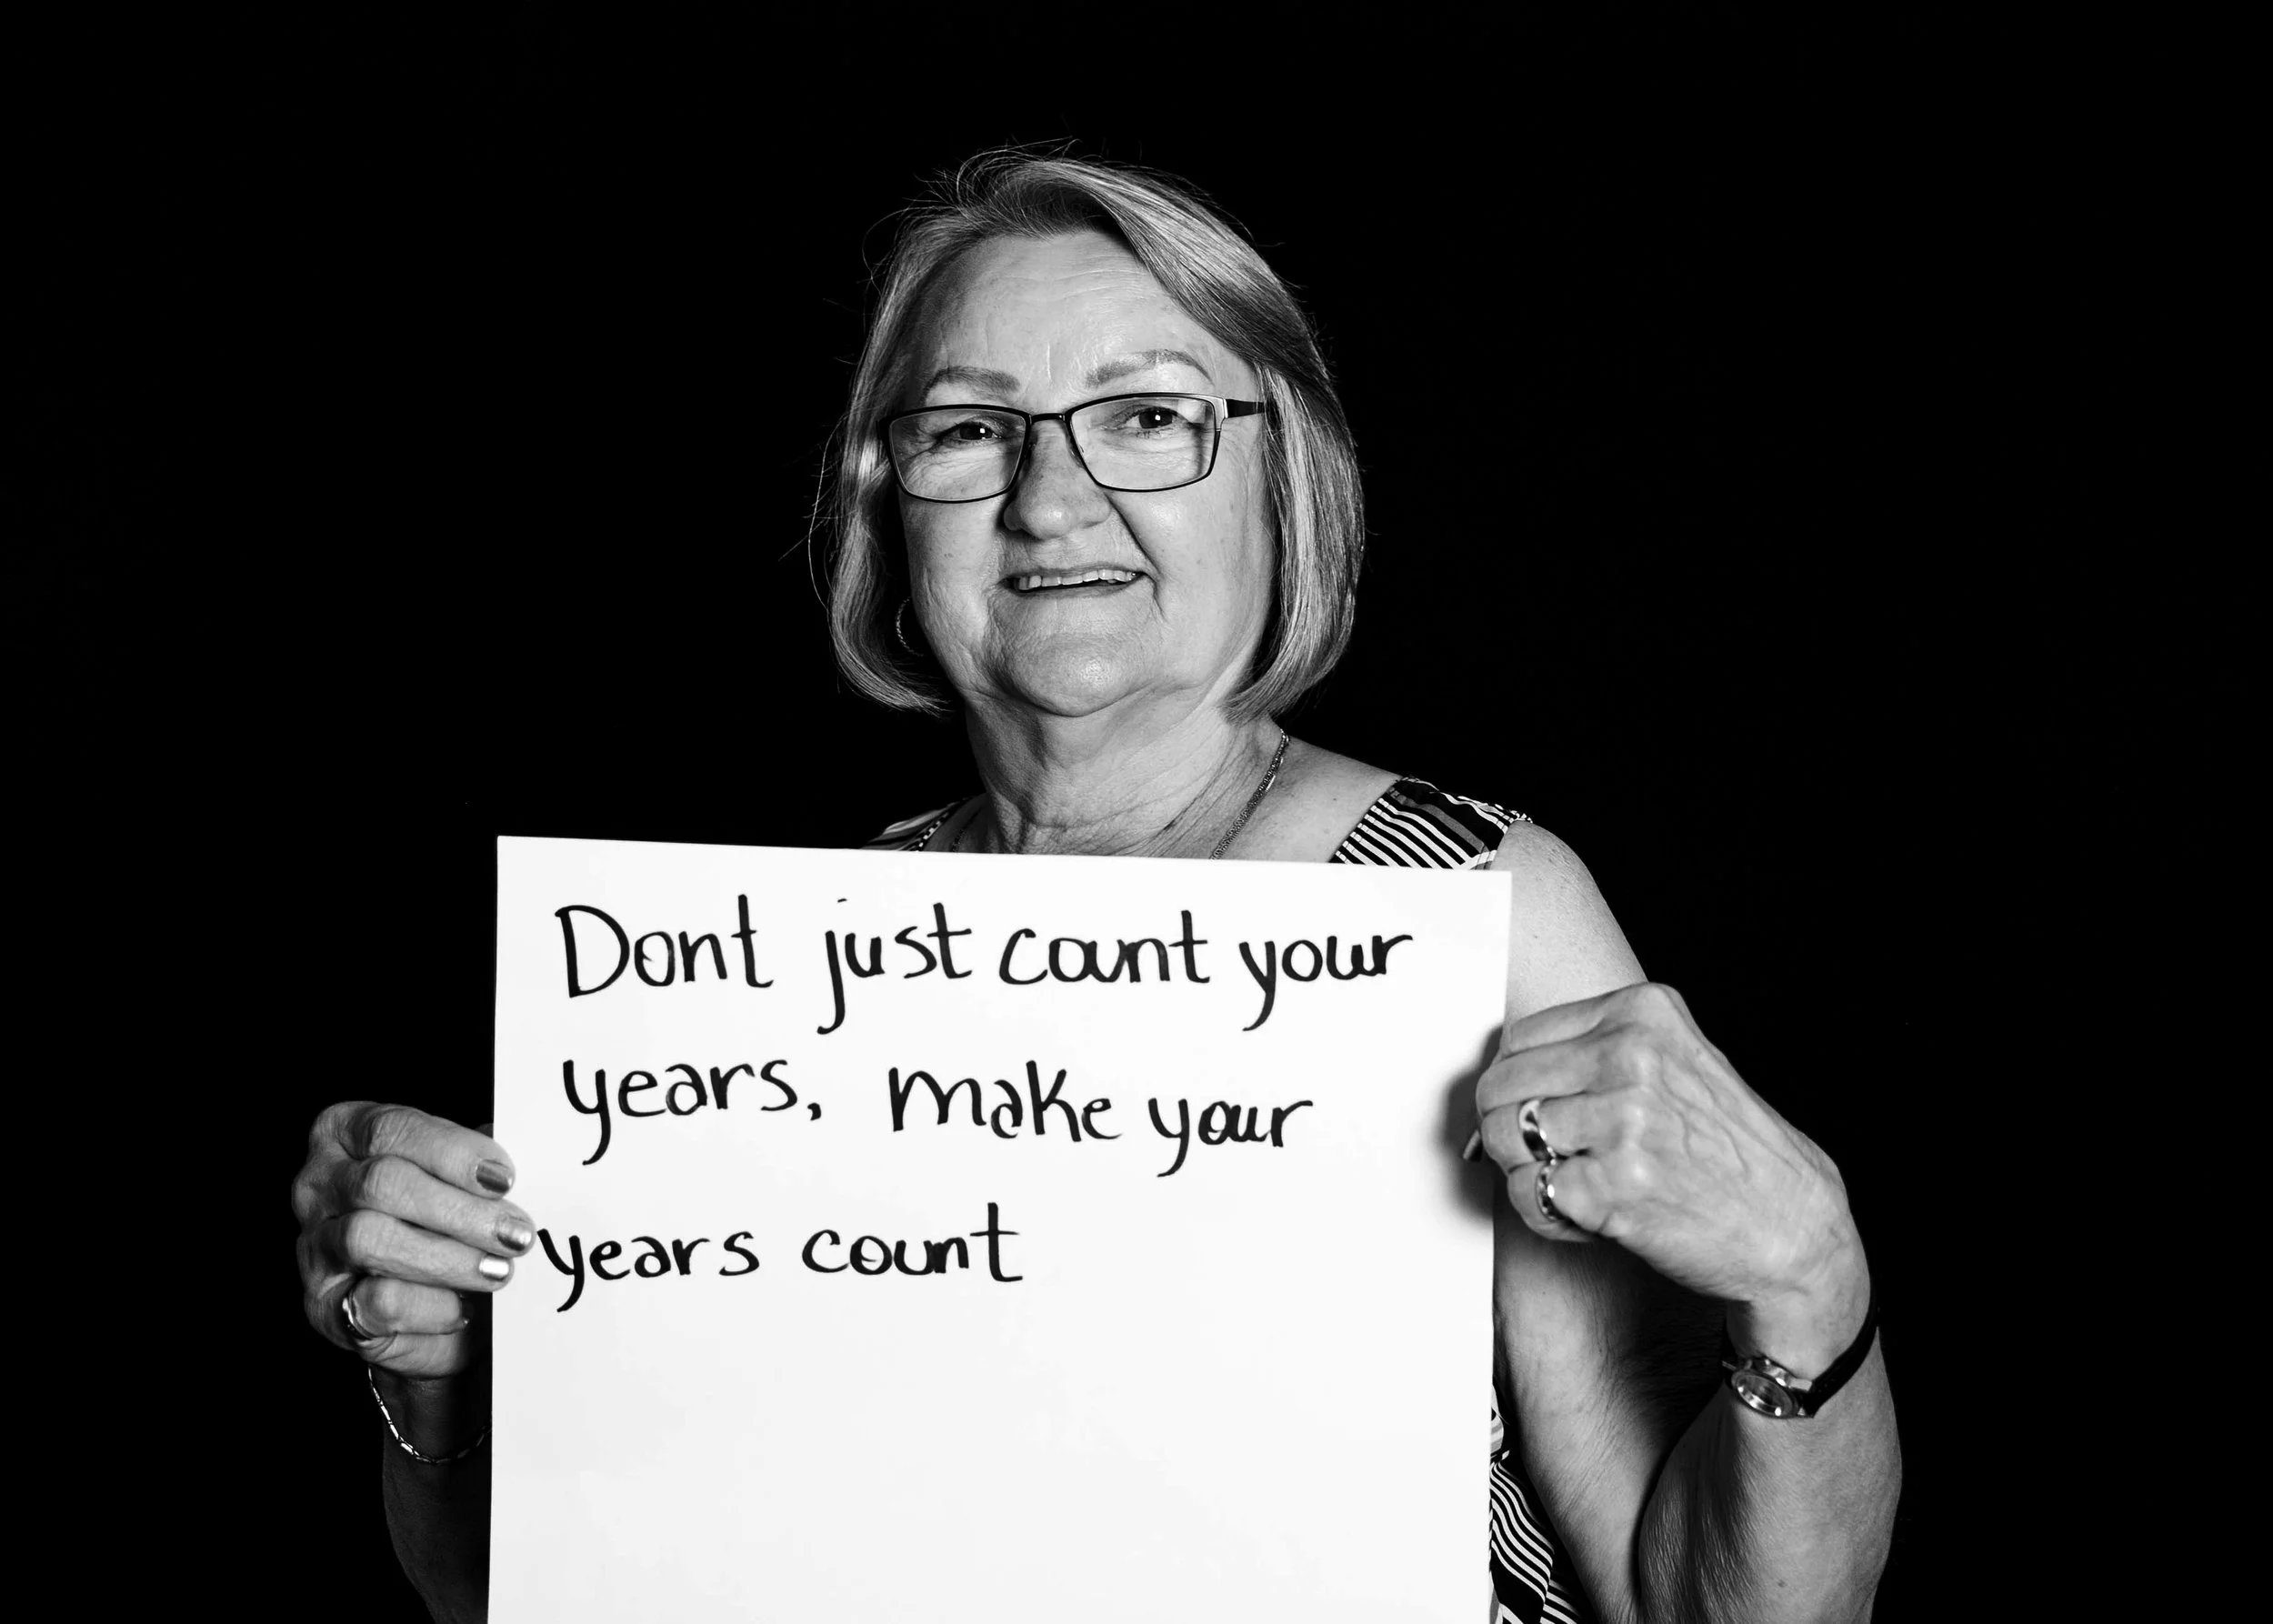 Dont just count your
years, make your
years count